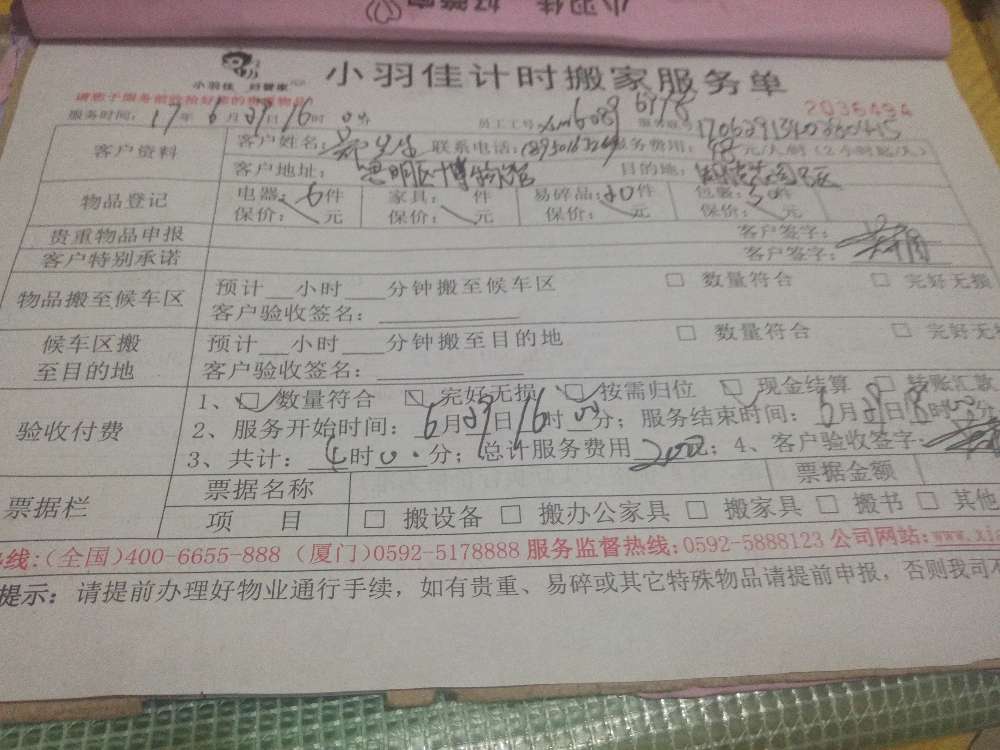 小羽佳 好管家
小羽佳计时搬家服务单
请您于服务前收拾好您的贵重物品
2036494
服务时间：17年6月29日16时0分 员工工号：xm6089 6178 服务单号
客户资料 客户姓名： 联系电话： 服务费用： 元/人/时（2小时起/人）
客户地址：思明区博物馆 目的地：
物品登记 电器：6件 家具： 件 易碎品：20件 包裹：50件
保价： 元 保价： 元 保价： 元 保价： 元
贵重物品申报 客户签字：
客户特别承诺 客户签字：
物品搬至候车区 预计__小时___分钟搬至候车区 □ 数量符合 □ 完好无损
客户验收签名：
候车区搬至目的地 预计__小时___分钟搬至目的地 □ 数量符合 □ 完好无
客户验收签名：
验收付费 1、☑数量符合 ☑完好无损 ☑按需归位 ☑现金结算 □转账汇款
2、服务开始时间：6月29日16时00分；服务结束时间：6月29日18时00分
3、共计：4时00分；总计服务费用200；4、客户验收签字：
票据栏 票据名称 票据金额
项 目 □ 搬设备 □ 搬办公家具 □ 搬家具 □ 搬书 □ 其他
热线:(全国)400-6655-888 (厦门)0592-5178888 服务监督热线:0592-5888123 公司网站:www.xia
提示：请提前办理好物业通行手续，如有贵重、易碎或其它特殊物品请提前申报，否则我司不